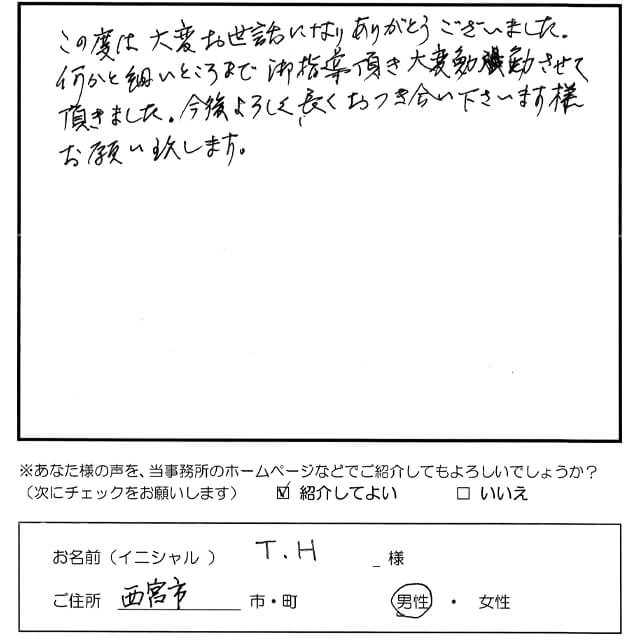 この度は大変お世話になりありがとうございました。
何かと細いところまで御指導頂き大変勉動させて
頂きました。今後よろしく長くおつき合い下さいます様
お願い致します。
※あなた様の声を、当事務所のホームページなどでご紹介してもよろしいでしょうか？
（次にチェックをお願いします） ☑ 紹介してよい □ いいえ
お名前（イニシャル ） T.H 様
ご住所 西宮市 市・町 男性 ・ 女性